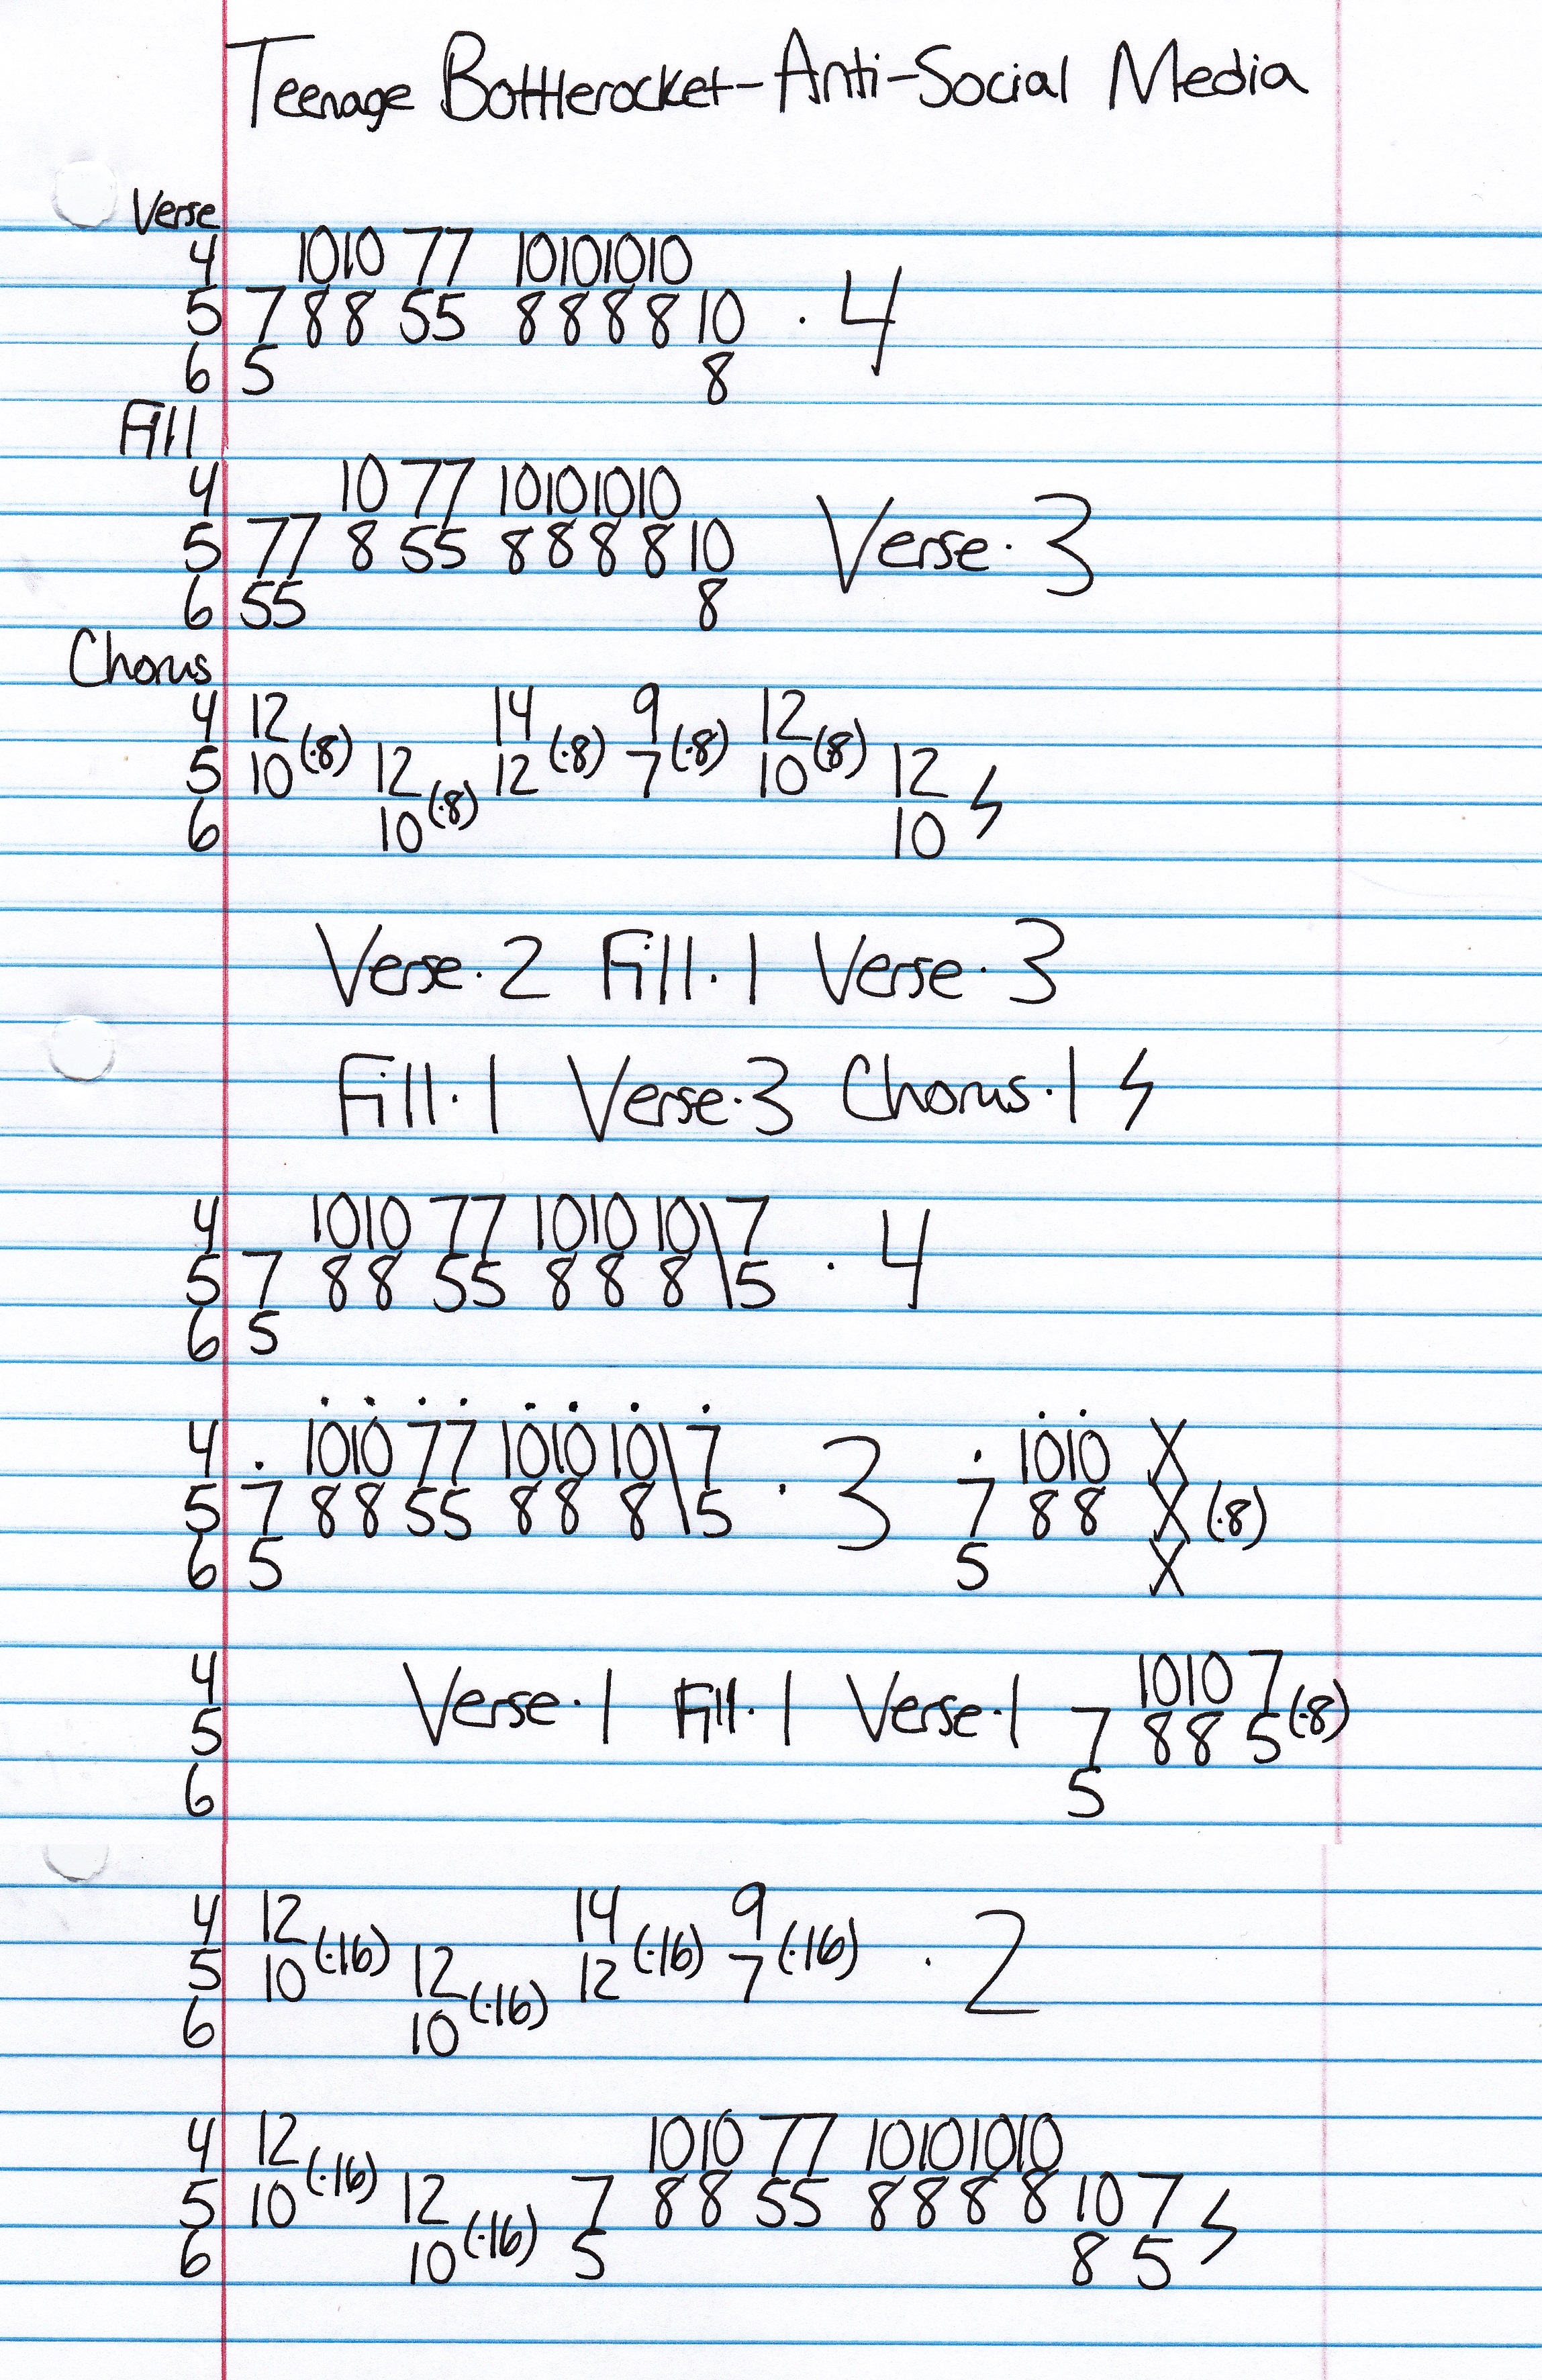 Teenage Bottlerocket-Anti-Social Media
Verse
4 1010 77 10101010
5 7 88 55 8888 10 · 4
6 5 8
Fill
4 10 77 10101010
5 77 8 55 8888 10 Verse·3
6 55 8
Chorus
4 12 14 9 12
5 10 (·8) 12 12 (·8) 7 (·8) 10 (·8) 12
6 10 (·8) 10 ϟ
Verse·2 Fill·1 Verse·3
Fill·1 Verse·3 Chorus·1 ϟ
4 1010 77 1010 10\7
5 7 88 55 88 8\5 · 4
6 5
4 · 1010 77 1010 10\7 1010 X
5 7 88 55 88 8\5 · 3 7 88 X (·8)
6 5 5 X
4 1010 7
5 Verse·1 Fill·1 Verse·1 7 88 5 (·8)
6 5
4 12 14 9
5 10 (·16) 12 12 (·16) 7 (·16) · 2
6 10 (·16)
4 12 1010 77 10101010
5 10 (·16) 12 7 88 55 8888 10 7 ϟ
6 10 (·16) 5 8 5